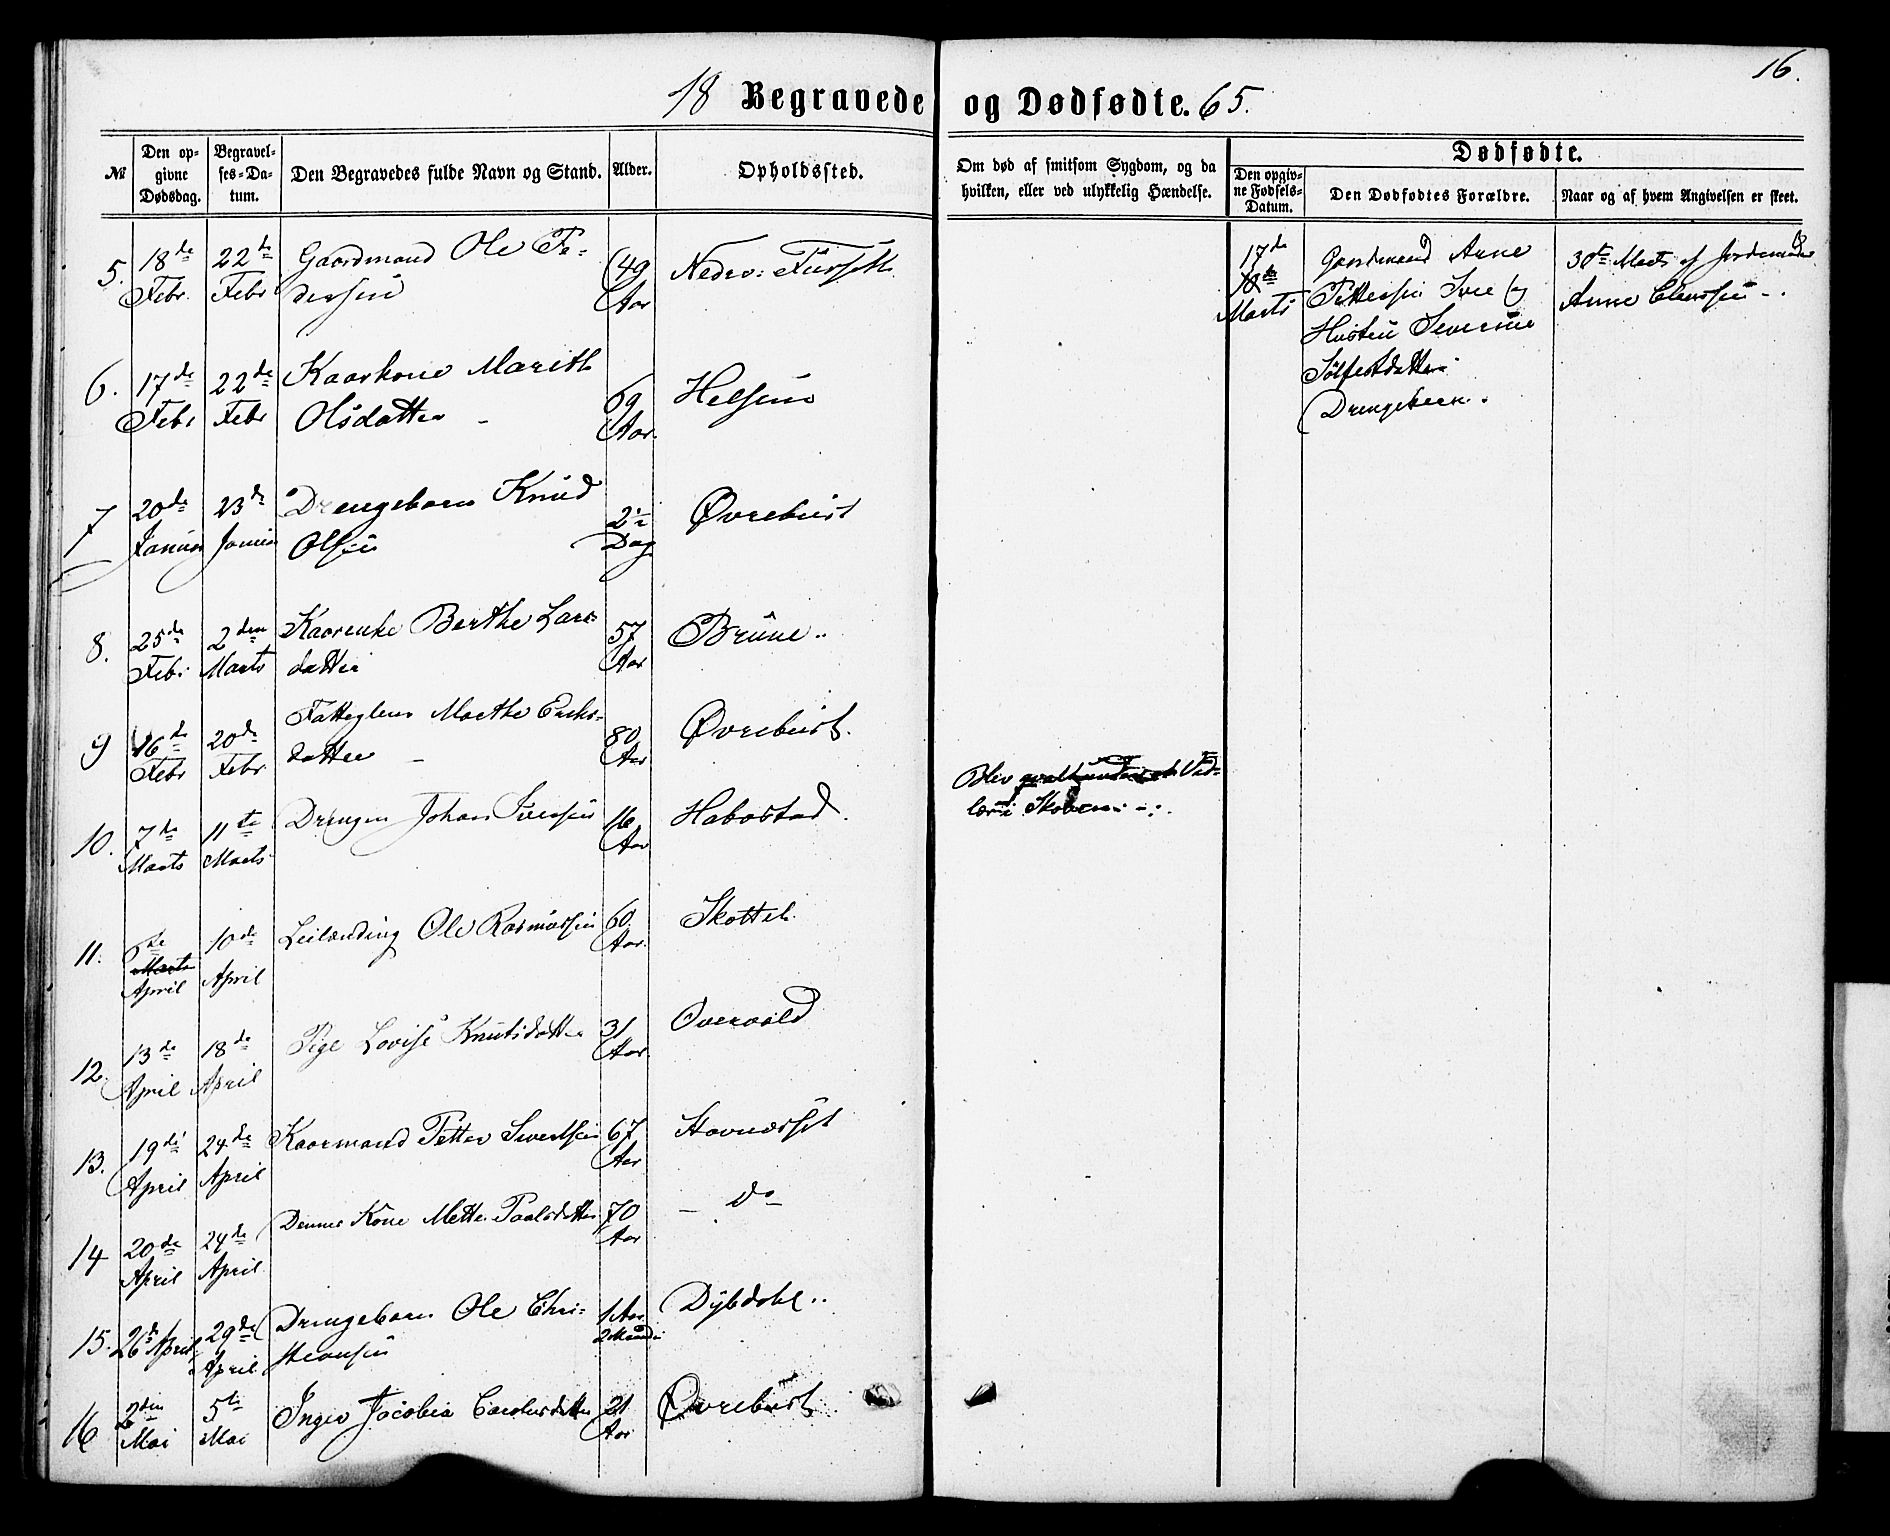 16.
18 Begravede og Dødfødte. 65.
№
Den op-
givne
Dødsdag.
Begravel-
ses-Da-
tum.
Den Begravedes fulde Navn og Stand.
Alder.
Opholdssted.
Om død af smitsom Sygdom, og da
hvilken, eller ved ulykkelig Hændelse.
Dødfødte.
Den opgiv-
ne Fødsels-
Datum.
Den Dødfødtes Forældre.
Naar og af hvem Angivelsen er skeet.
5. 18de Febr. 22de Febr Gaardmand Ole Pe-
dersen 49 Aar
17de
Marts
Gaardmand Arne
Pettersen og
Hustru
Drengebarn.
30te Marts af
Anne
6. 17de Febr 22de Febr Kaarkone Marith
Olsdatter 69 Aar. Helsem
7 20de Januar 23de Januar Drengebarn Knud
Olsen 2½ Dag Øvrebust
8. 25de Febr 2den Marts Kaarenke Berthe Lars-
datter 57 Aar Brune
9 16de Febr 20de Febr Marthe Eriks-
datter 80 Aar Øvrebust.
10. 7de Marts 11te Marts Drengen Johan Iversen 16 Aar Habostad.
Blev
i Skoven
11. 6de Marts April 10de April Leilænding Ole Rasmussen 60 Aar. Skottet
12. 13de April 18de April Pige Lovise Knutsdatter 31 Aar. Overvold
13. 19de April 24de April Kaarmand Petter Sivertsen 67 Aar
14 20de April 24de April Dennes Kone Mette Paalsdatter 70 Aar — do —
15. 26de April 29de April Drengebarn Ole Chri-
stiansen 1 Aar 2 Maander Dybdahl
16 2den Mai 5te Mai Jacobia 21 Aar Øvrebust